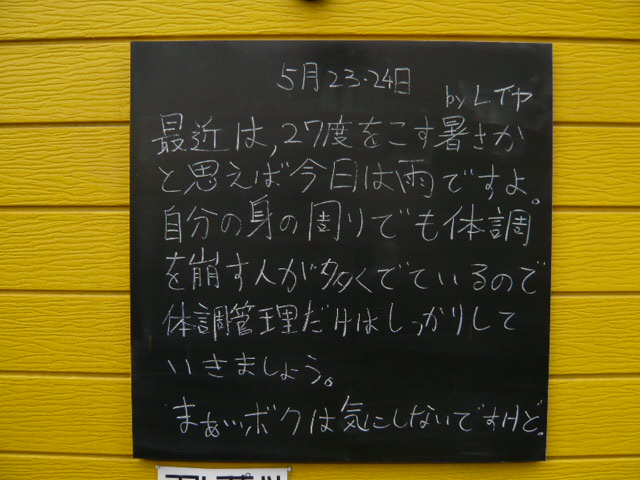 5月23・24日
byレイヤ
最近は,27度をこす暑さか
と思えば今日は雨ですよ。
自分の身の周りでも体調
を崩す人が多くでているので
体調管理だけはしっかりして
いきましょう。
まぁ、ボクは気にしないですけど。